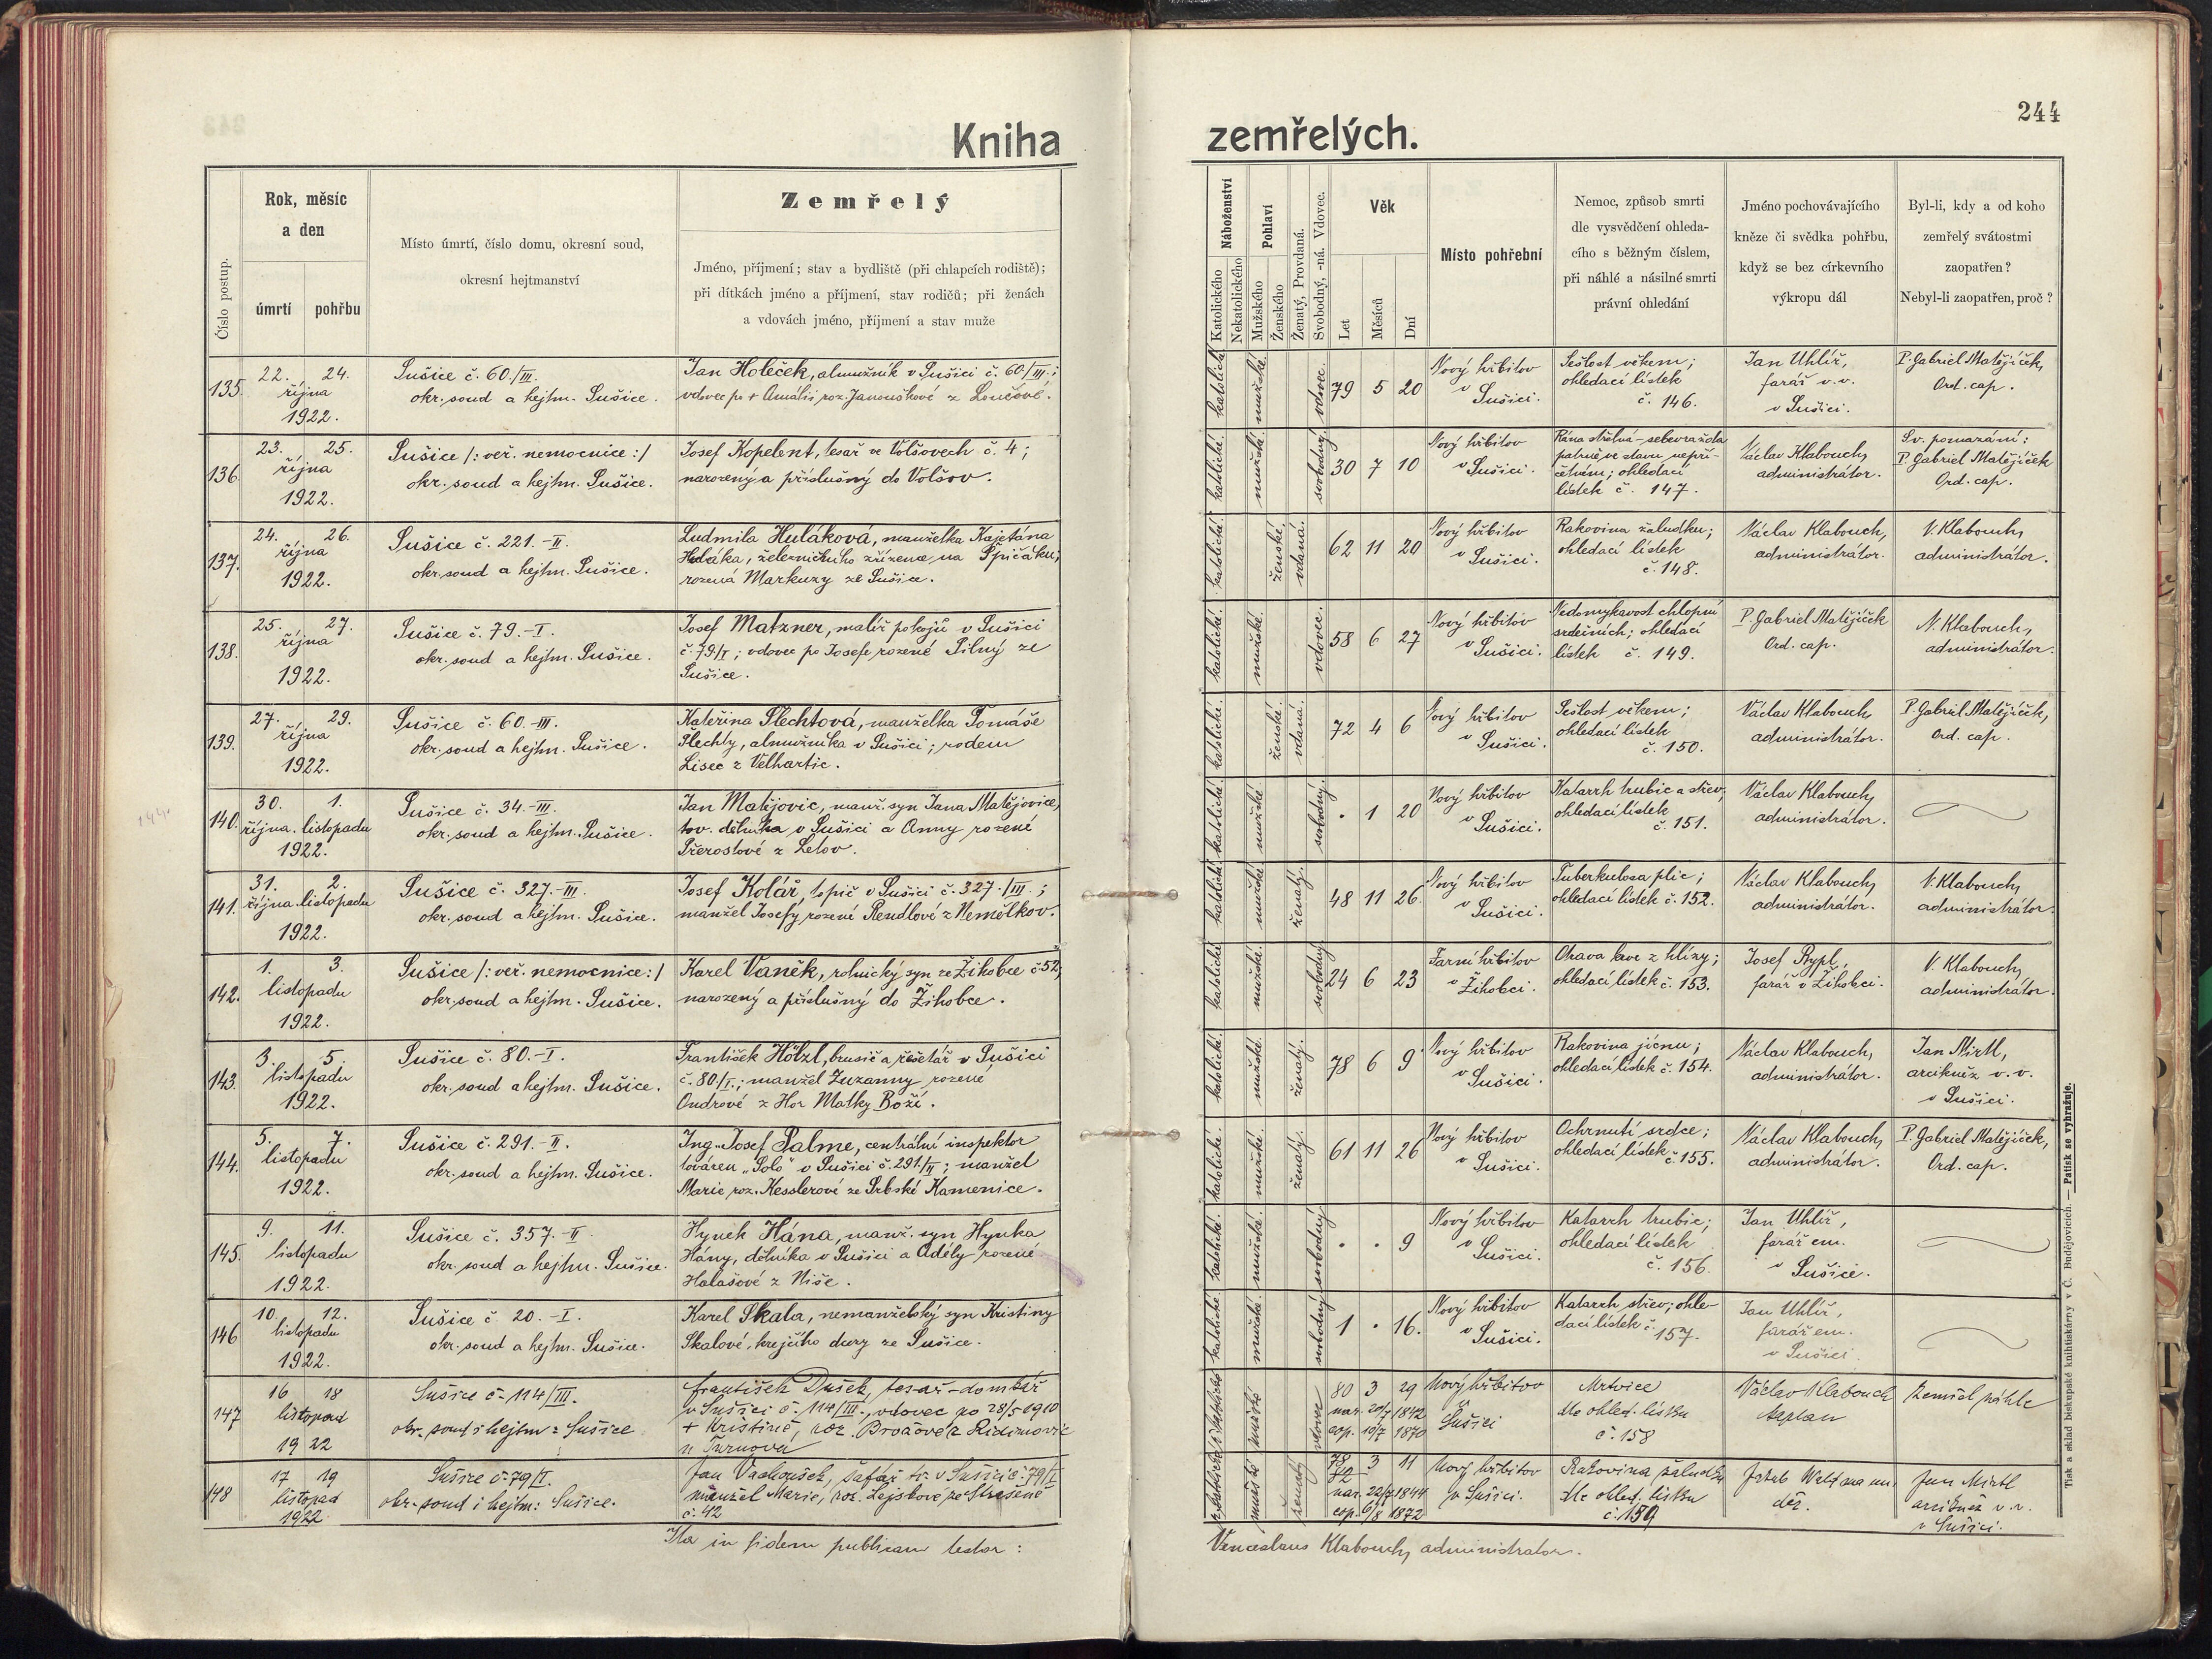 244
Kniha zemřelých.
Číslo postup.
Rok, měsíc
a den
úmrtí
pohřbu
Místo úmrtí, číslo domu, okresní soud,
okresní hejtmanství
Zemřelý
Jméno, příjmení; stav a bydliště (při chlapcích rodiště);
při dítkách jméno a příjmení, stav rodičů; při ženách
a vdovách jméno, příjmení a stav muže
Náboženství
Katolického
Nekatolického
Pohlaví
Mužského
Ženského
Ženatý, Provdaná.
Svobodný, -ná. Vdovec.
Věk
Let
Měsíců
Dní
Místo pohřební
Nemoc, způsob smrti
dle vysvědčení ohleda-
cího s běžným číslem,
při náhlé a násilné smrti
právní ohledání
Jméno pochovávajícího
kněze či svědka pohřbu,
když se bez církevního
výkropu dál
Byl-li, kdy a od koho
zemřelý svátostmi
zaopatřen?
Nebyl-li zaopatřen, proč?
135.
22. 24.
října
1922.
Sušice č. 60./III.
okr. soud a hejtm. Sušice.
Jan Holeček, almužník v Sušici č. 60./III.;
vdovec po + Amalii roz. Janouškové z Loučové.
katolické.
mužské.
vdovec.
79 5 20
Nový hřbitov
v Sušici.
Sešlost věkem;
ohledací lístek
č. 146.
Jan Uhlíř,
farář v. v.
v Sušici.
P. Gabriel Matějíček,
Ord. cap.
136.
23. 25.
října
1922.
Sušice /: veř. nemocnice :/
okr. soud a hejtm. Sušice.
Josef Kopelent, tesař ve Volšovech č. 4;
narozený a příslušný do Volšov.
katolické.
mužské.
svobodný.
30 7 10
Nový hřbitov
v Sušici.
Rána střelná – sebevražda
patrně ve stavu nepří-
četném; ohledací
lístek č. 147.
Václav Klabouch,
administrátor.
Sv. pomazání:
P. Gabriel Matějíček
Ord. cap.
137.
24. 26.
října
1922.
Sušice č. 221.-II.
okr. soud a hejtm. Sušice.
Ludmila Huláková, manželka Kajetána
Huláka, železničního zřízence na Špičáku;
rozená Markuzy ze Sušice.
katolické.
ženské.
vdaná.
62 11 20
Nový hřbitov
v Sušici.
Rakovina žaludku;
ohledací lístek
č. 148.
Václav Klabouch,
administrátor.
V. Klabouch,
administrátor.
138.
25. 27.
října
1922.
Sušice č. 79.-I.
okr. soud a hejtm. Sušice.
Josef Matzner, malíř pokojů v Sušici
č. 79/I; vdovec po Josefe rozené Silný ze
Sušice.
katolické.
mužské.
vdovec.
58 6 27
Nový hřbitov
v Sušici.
Nedomykavost chlopní
srdečních; ohledací
lístek č. 149.
P. Gabriel Matějíček
Ord. cap.
V. Klabouch,
administrátor.
139.
27. 29.
října
1922.
Sušice č. 60.-III.
okr. soud a hejtm. Sušice.
Kateřina Šlechtová, manželka Tomáše
Šlechty, almužníka v Sušici; rodem
Lisec z Velhartic.
katolické.
ženské.
vdaná.
72 4 6
Nový hřbitov
v Sušici.
Sešlost věkem;
ohledací lístek
č. 150.
Václav Klabouch,
administrátor.
P. Gabriel Matějíček,
Ord. cap.
140.
30. 1.
října. listopadu
1922.
Sušice č. 34.-III.
okr. soud a hejtm. Sušice.
Jan Matějovic, manž. syn Jana Matějovice,
tov. dělníka v Sušici a Anny rozené
Přerostové z Letov.
katolické.
mužské
svobodný.
. 1 20
Nový hřbitov
v Sušici.
Katarrh trubic a střev;
ohledací lístek
č. 151.
Václav Klabouch,
administrátor.
141.
31. 2.
října. listopadu
1922.
Sušice č. 327.-III.
okr. soud a hejtm. Sušice.
Josef Kolář, topič v Sušici č. 327./III.;
manžel Josefy rozené Rendlové z Nemělkov.
katolické
mužské.
ženatý.
48 11 26
Nový hřbitov
v Sušici.
Tuberkulosa plic;
ohledací lístek č. 152.
Václav Klabouch,
administrátor.
V. Klabouch,
administrátor.
142.
1. 3.
listopadu
1922.
Sušice /: veř. nemocnice :/
okr. soud a hejtm. Sušice.
Karel Vaněk, rolnický syn ze Žihobce č. 52,
narozený a příslušný do Žihobce.
katolické
mužské.
svobodný
24 6 23
Farní hřbitov
v Žihobci.
Otrava krve z hlízy;
ohledací lístek č. 153.
Josef Rypl,
farář v Žihobci.
V. Klabouch,
administrátor.
143.
3. 5.
listopadu
1922.
Sušice č. 80.-I.
okr. soud a hejtm. Sušice.
František Hölzl, brusič a řešetář v Sušici
č. 80/I.; manžel Zuzanny rozené
Ondrové z Hor Matky Boží.
katolické.
mužské.
ženatý.
78 6 9
Nový hřbitov
v Sušici.
Rakovina jícnu;
ohledací lístek č. 154.
Václav Klabouch,
administrátor.
Jan Mirtl,
arcikněz v. v.
v Sušici.
144.
5. 7.
listopadu
1922.
Sušice č. 291.-II.
okr. soud a hejtm. Sušice.
Ing. Josef Palme, centrální inspektor
továren „Solo" v Sušici č. 291./II; manžel
Marie roz. Kesslerové ze Srbské Kamenice.
katolické.
mužské.
ženatý.
61 11 26
Nový hřbitov
v Sušici.
Ochrnutí srdce;
ohledací lístek č. 155.
Václav Klabouch,
administrátor.
P. Gabriel Matějíček,
Ord. cap.
145.
9. 11.
listopadu
1922.
Sušice č. 357.-II
okr. soud a hejtm. Sušice.
Hynek Hána, manž. syn Hynka
Hány, dělníka v Sušici a Adély rozené
Halašové z Niše.
katolické.
mužské.
svobodný
. . 9
Nový hřbitov
v Sušici.
Katarrh trubic;
ohledací lístek
č. 156.
Jan Uhlíř,
farář em.
v Sušice.
146
10. 12.
listopadu
1922.
Sušice č. 20.-I.
okr. soud a hejtm. Sušice.
Karel Skala, nemanželský syn Kristiny
Skalové, krejčího dcery ze Sušice.
katolické
mužské.
svobodný
1 . 16.
Nový hřbitov
v Sušici.
Katarrh střev; ohle-
dací lístek č. 157.
Jan Uhlíř,
farář em.
v Sušici
147
16 18
listopad
1922
Sušice č. 114/III.
okr. soud i hejtm: Sušice
František Dušek, tesař - domkář
v Sušici č. 114/III., vdovec po 28/5 1910
+ Kristině, roz. Brožové z
u Turnova
mužské
vdovec
80 3 29
nar. 20/7 1842
cop. 10/7 1870
Nový hřbitov
Sušici
Mrtvice
dle ohled. lístku
č. 158
Václav Klabouch
kaplan
Zemřel náhle
148
17 19
listopad
1922
Sušice č. 79/I.
okr. soud i hejtm: Sušice.
Jan Vachoušek, šafář v. v. v Sušici č. 79/I
manžel Marie, roz. Lejskové ze
č. 42
mužské
ženatý
78
72 3 11
nar. 22/7 1844
cop. 6/8 1872
Nový hřbitov
v Sušici.
Rakovina žaludku
dle ohled. lístku
č. 159
Jan Mirtl
arcikněz v. v.
v Sušici.
Ita in fidem publicam testor:
Venceslaus Klabouch, administrator.
Tisk a sklad biskupské knihtiskárny v Č. Budějovicích. — Patisk se vyhražuje.